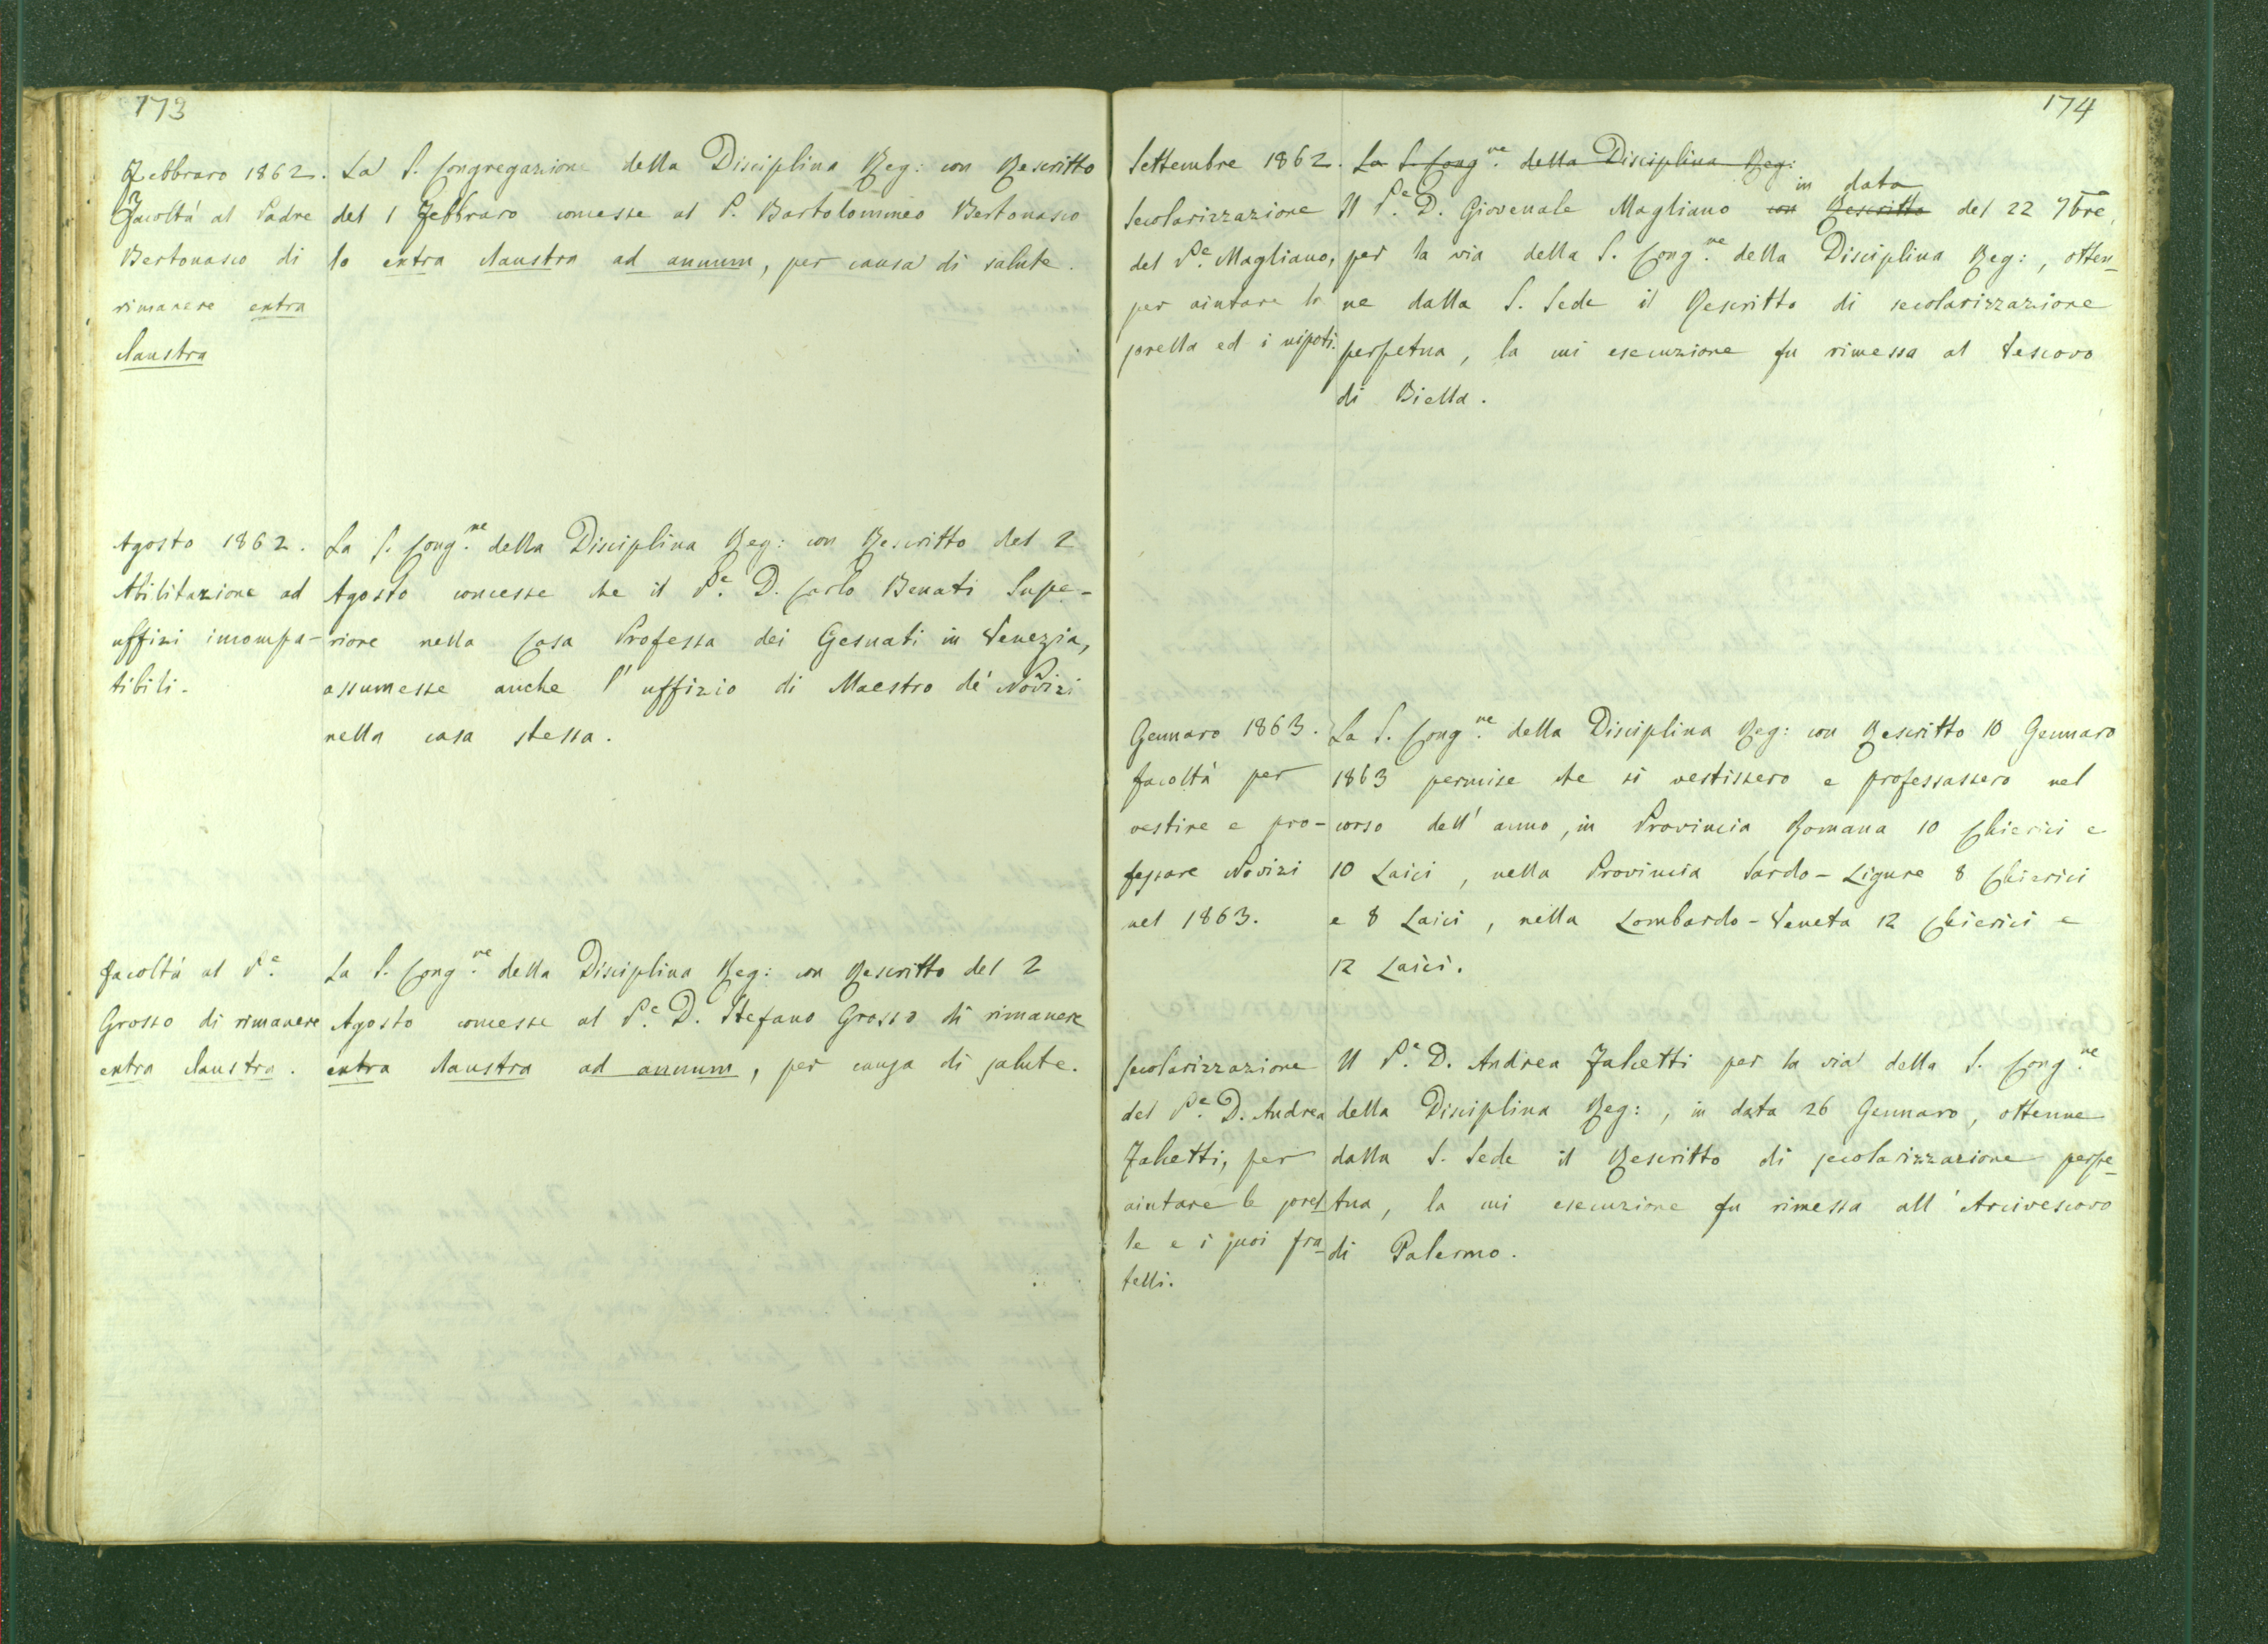 173
Febbraro 1862.
Facoltà al Padre
Bertonasco di
rimanere extra
claustra
La S. Congregazione della Disciplina Reg: con Rescritto
del 1 Febbraro concesse al P. Bartolommeo Bertonasco
lo extra claustra ad annum, per causa di salute.
Agosto 1862.
Abilitazione ad
uffizi incompa-
tibili.
La S. Cong.ne della Disciplina Reg: con Rescritto del 2
Agosto concesse che il P.e D. Carlo Benati Supe-
riore nella Casa Professa dei Gesuati in Venezia,
assumesse anche l'uffizio di Maestro de' Novizi
nella casa stessa.
Facoltà al P.e
Grosso di rimanere
extra claustra.
La S. Cong.ne della Disciplina Reg: con Rescritto del 2
Agosto concesse al P.e D. Stefano Grosso di rimanere
extra claustra ad annum, per causa di salute.
174
Settembre 1862.
Secolarizzazione
del P.e Magliano,
per aiutare la
sorella ed i nipoti.
La S. Cong.ne della Disciplina Reg:
in data
Il P.e D. Giovenale Magliano con Rescritto del 22 7bre,
per la via della S. Cong.ne della Disciplina Reg:, otten-
ne dalla S. Sede il Rescritto di secolarizzazione
perpetua, la cui esecuzione fu rimessa al Vescovo
di Biella.
Gennaro 1863.
facoltà per
vestire e pro-
fessare Novizi
nel 1863.
La S. Cong.ne della Disciplina Reg: con Rescritto 10 Gennaro
1863 permise che si vestissero e professassero nel
corso dell'anno, in Provincia Romana 10 Chierici e
10 Laici, nella Provincia Sardo-Ligure 8 Chierici
e 8 Laici, nella Lombardo-Veneta 12 Chierici e
12 Laici.
Secolarizzazione
del P.e D. Andrea
Falcetti, per
aiutare le sorel-
le e i suoi fra-
telli.
Il P.e D. Andrea Falcetti per la via della S. Cong.ne
della Disciplina Reg:, in data 26 Gennaro, ottenne
dalla S. Sede il Rescritto di secolarizzazione perpe-
tua, la cui esecuzione fu rimessa all'Arcivescovo
di Palermo.